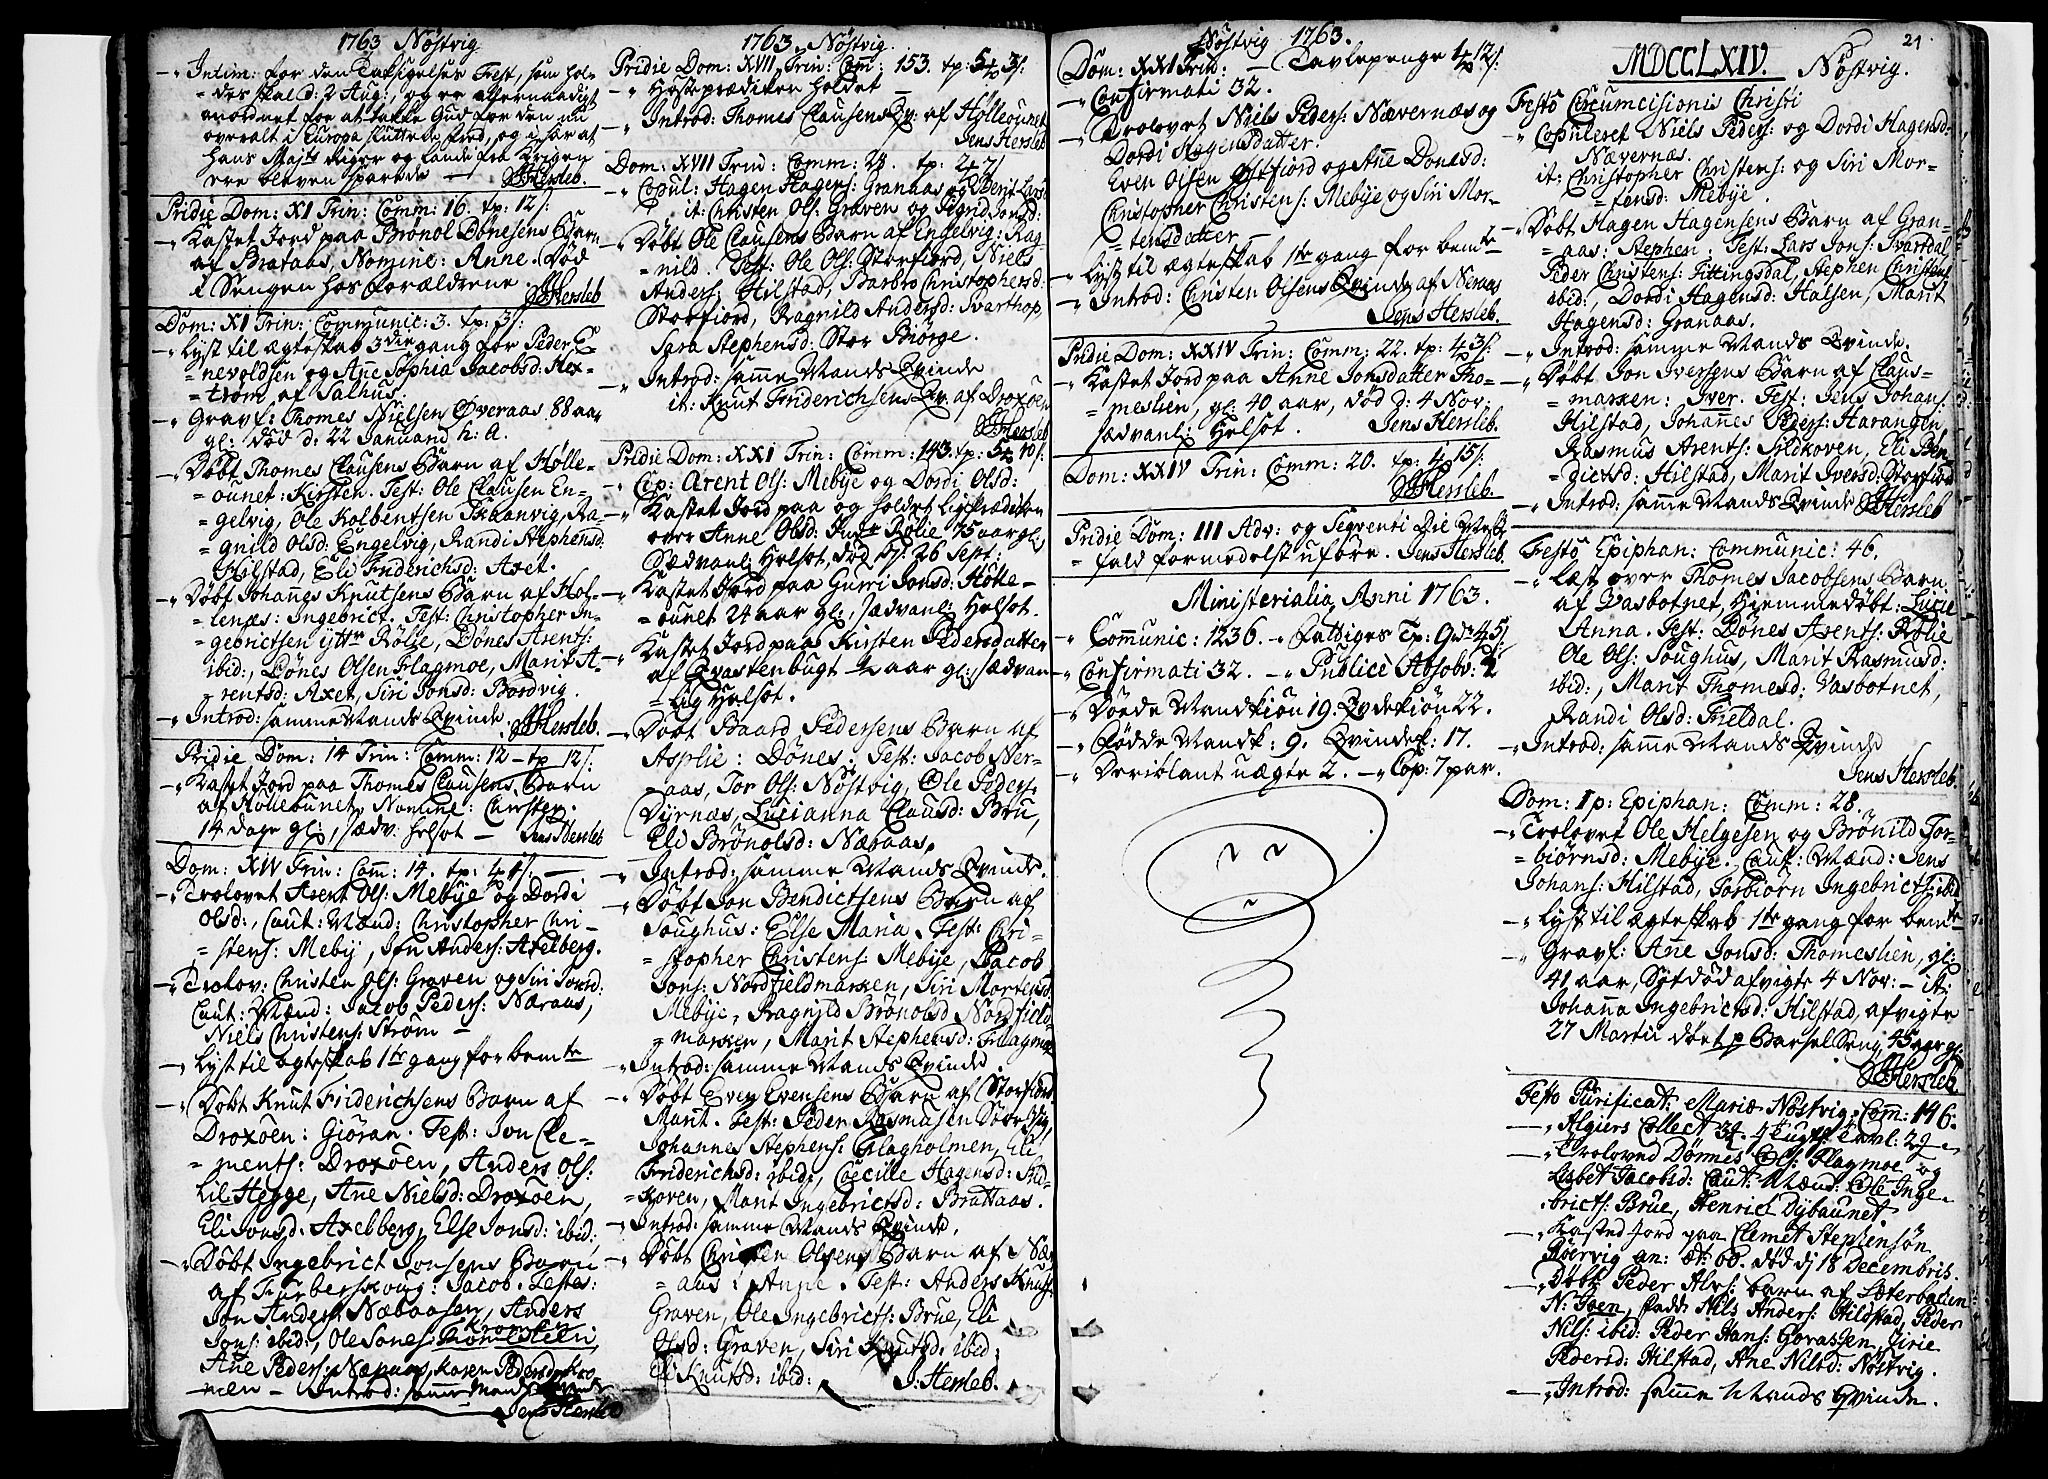 1763 Nøstvig
-, Intim: for den Taksigelses Fest, som hol-
= des skal d: 2 Aug:, og er allernaadigst
anordnet for at takke Gud for den nu
overalt i Europa sluttede fred, og i sær at
hans Majts Riger og Lande fra Krigen
ere bleven sparede — JHersleb.
Pridie Dom: XI Trin: Comm: 16 tp: 12 s:
-, Kastet Jord paa Brønol Dønesens Barn
af Brataas, Nomine: Anne. Død
i Sengen hos forældrene. JHersleb
Dom: XI Trin: Communic: 3. tp: 3 s:
-, Lyst til ægteskab 3die gang for Peder E
= nevoldsen og Ane Sophia Jacobsd: Hex-
= trom af Salhus.
-, Gravf: Thomes Nielsen Øveraas 88 aar
gl: død d: 22 Januarii h: a.
-, Døbt Thomes Clausens Barn af Holle-
= ounet: Kirsten. Test: Ole Clausen En-
= gelvig, Ole Kolbentsen Tranvig, Ra-
= gnild Olsd: Engelvig, Randi Stephensd
Hilstad, Eli Friderichsd: Axet.
-, Døbt Johañes Knutsens Barn af Hol-
= lenes: Ingebrict. Test: Christopher In-
= gebrictsen yttr Rølie, Dønes Arens:
ibid:, Dønes Olsen Flagmoe, Marit A-
= rentsd: Axet, Siri Jonsd: Bordvig.
-, Introd: samme Mands Qvinde. JHersleb.
Pridie Dom: 14 Trin: Comm: 12 - tp 12 s:
-, Kastet Jord paa Thomes Clausens Barn
af Hollebunet, Nomine: Chirsten.
14 dage gl:, sædv: helsot — Jens Hersleb
Dom: XIV Trin: Com: 14. tp:
-, Trolovet Arent Ols: Mebye og Dordi
Olsd:, Caut: Mænd: Christopher Chri-
= stens: Meby, Jon Anders: Axelberg.
-, Trolov: Christen Ols: Graven og Siri Jonsd:
Caut: Mænd: Jacob Peders: Næraas,
Niels Christens: Strøm —
-, Lyst til ægteskab 1te gang for bemte
-, Døbt Knut Friderichsens Barn af
Droxøen: Giøran. Test: Jon Cle-
= ments: Droxøen, Anders Ols:
Lil Hegge, Ane Nielsd: Droxøen,
Eli Jonsd: Axelberg, Else Jonsd: ibid:,
-, Døbt Ingebrict Jonsens Barn
af Turberskoug: Jacob. Testes:
Jon Anders: Næbaasen, Anders
Jons: ibid:, Ole Jones:
Ane Peders: Næraas, Karen Pedersd: Kro
men — Introd: samme Mands Qvinde
Jens Hersleb
1763. Nøstvig.
Pridie Dom: XVII Trin: Com: 153. tp:
-, Høsteprædiken holdet —
-, Introd: Thomes Clausens Qv: af Holleounet
Jens Hersleb
Dom: XVII Trin: Comm: 28. tp:
-, Copul: Hagen Hagens: Granaas og Berit Larsd:
it: Christen Ols: Graven og Sigrid Jonsd:
-, Døbt Ole Clausens Barn af Engelvig: Rag
= nild. Test: Ole Ols: Storfiord, Niels
Anders: Hilstad, Barbro Christophersd:
Storfiord, Ragnild Andersd: Svarthop,
Sara Stephensd: Stor Biørge.
-, Introd: samme Mands Qvinde
it: Knut Friderichsens Qv. af Droxøen
JHersleb
Pridie Dom: XXI Trin: Comm: 143. tp:
-, Cop: Arent Ols: Mebye og Dordi Olsd:
-, Kastet Jord paa og holdet Ligprædiken
over Anne Olsd: Rølie, 75 aar gl:
Sædvanl: Helsot, død 26 Sept:
-, Kastet Jord paa Gurri Jonsd: Holle-
= ounet 24 aar gl:, sædvanl: Helsot.
-, Kastet Jord paa Kirsten Pedersdatter
af Qvastenbugt ½ aar gl: sædvan
= lig Helsot.
-, Døbt Baard Pedersens Barn af
Asplie: Dønes. Test: Jacob Ner-
aas, Tor Ols: Nøstvig, Ole Peders:
Dyrnæs, Lucianna Clausd: Bru,
Eli Brønolsd: Næraas.
-, Introd: samme Mands Qvinde.
-, Døbt Jon Bendictsens Barn af
Soughus: Else Maria. Test: Chri-
= stopher Christens: Mebye, Jacob
Jons: Nordfieldmarken, Siri Mortensd:
Mebye, Ragnild Brønolsd Nordfield-
= marken, Marit Stephensd: Flagmoe
-, Introd: samme Mands Qvinde
-, Døbt Even Evensens Barn af Storfiord:
Marit. Test: Peder Rasmusen Sørvig,
Johannes Stephens: Flagholmen, Eli
Friderichsd: ibid:, Cæcille Hagensd: Sild-
= koven, Marit Ingebrictsd: Brattaas.
-, Introd: samme Mands Qvinde.
-, Døbt Christen Olsens Barn af Næ
= aas: Anne. Test: Anders Knuts:
Graven, Ole Ingebricts: Brue, Eli
Olsd: Graven, Siri Knutsd: ibid:
Eli Knutsd: ibid: J: Hersleb.
Nøstvig 1763.
Dom: XXI Trin: — Tavlepenge
-, Confirmati 32.
-, Trolovet Niels Peders: Nævernæs og
Dordi Hagensdatter.
Even Olsen Østfiord og Añe Donesd:
Christopher Christens: Mebye og Siri Mor-
= tensdatter —
-, Lyst til ægteskab 1te gang for bemte
-, Introd: Christen Olsens Qvinde af Neraas
Jens Hersleb.
Pridie Dom: XXIV Trin: Comm: 22. tp:
-, Kastet Jord paa Anne Jonsdatter Tho-
= meslien, gl: 40 aar, død d: 4 Nov:
sædvanl: Helsot. Jens Hersleb.
Dom: XXIV Trin: Comm: 20. tp:
JHersleb.
Pridie Dom: III Adv: og Seqventi Die Mess
= fald formedelst uføre. Jens Hersleb.
Ministerialia Anni 1763.
-, Communic: 1236. -, Fattiges Tp:
-, Confirmati 32. -, Publice Absolv:
-, Døede Mandkiøn 19. Qvdekiøn 22.
-, Fødde Mandk: 9. Qvindek: 17.
-, Deriblant uægte 2. -, Cop: 7 par.
21.
MDCCLXIV. Nøstvig.
Festo Circumcisionis Christi
-, Copuleret Niels Peders: og Dordi Hagensd:
Nævernæs.
it: Christopher Christens: og Siri Mor-
= tensd: Mebye.
-, Døbt Hagen Hagensens Barn af Gran-
= aas: Stephen. Test: Lars Jons: Svartdal
Peder Christens: Fittingsdal, Stephen Christens
ibid:, Dordi Hagensd: Halsen, Marit
Hagensd: Granaas.
-, Introd: samme Mands Qvinde.
-, Døbt Jon Iversens Barn af Claus-
= marken: Iver. Test: Jens Johans:
Hilstad, Johañes Peders: Harangen,
Rasmus Arents: Sildkoven, Eli Ben
= dictsd: Hilstad, Marit Iversd: Storfiord
-, Introd: samme Mands Qvinde JHersleb
Festo Epiphan: Communic: 46.
-, Læst over Thomes Jacobsens Barn
af Vasbotnet, Hiemmedøbt: Lucie
Anna. Test: Dønes Arents: Rølie
Ole Ols: Soughus, Marit Rasmusd:
ibid:, Marit Thomesd: Vasbotnet,
Randi Olsd: Fieldal.
-, Introd: samme Mands Qvinde
Jens Hersleb.
Dom: I p: Epiphan: Comm: 28.
-, Trolovet Ole Helgesen og Brønild Tor-
= biørnsd: Mebye. Caut: Mænd: Jens
Johans: Hilstad, Torbiørn Ingebricts: ibid
-, Lyst til ægteskab 1te gang for bemte
-, Gravf: Añe Jonsd: Thomeslien, gl:
41 aar, Sotdød afvigte 4 Nov: — it:
Johanna Ingebrictsd: Hilstad, afvigte
27 Martii døet p Barsel Seng 45 aar gl.
JHersleb
Festo Purificat: Mariæ Nøstvig. Com: 116.
-, Algiers Collect
-, Troloved Dønnes Ols: Flagmoe og
Lisbet Jacobsd: Caut: Mænd: Ole Inge-
bricts: Brue, Henric Dybaunet
-, Kasted Jord paa Clemet Stephensøn
Røervig an: æt: 60. død d: 18 Decembris.
-, Døbt Peder Alvs: barn af Sæterbakken
N: Joen, fadd: Nils Anders: Hildstad, Peder
Nils: ibid: Peder Hans: Goraasen, Sirie
Pedersd: Hilstad, Ane Nilsd: Nøstvig.
-, Introd: samme Mands Qvinde.